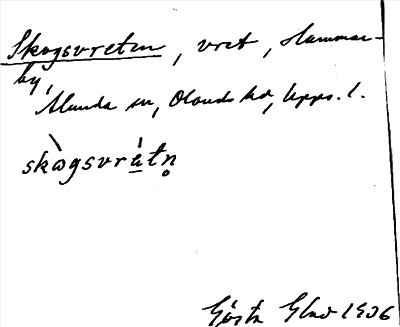 Skogsvreten, vret, Hammar-
by,
Alunda sn, Olands hd, Upps. l.
skògsvrátn̥
Gösta Glad 1906